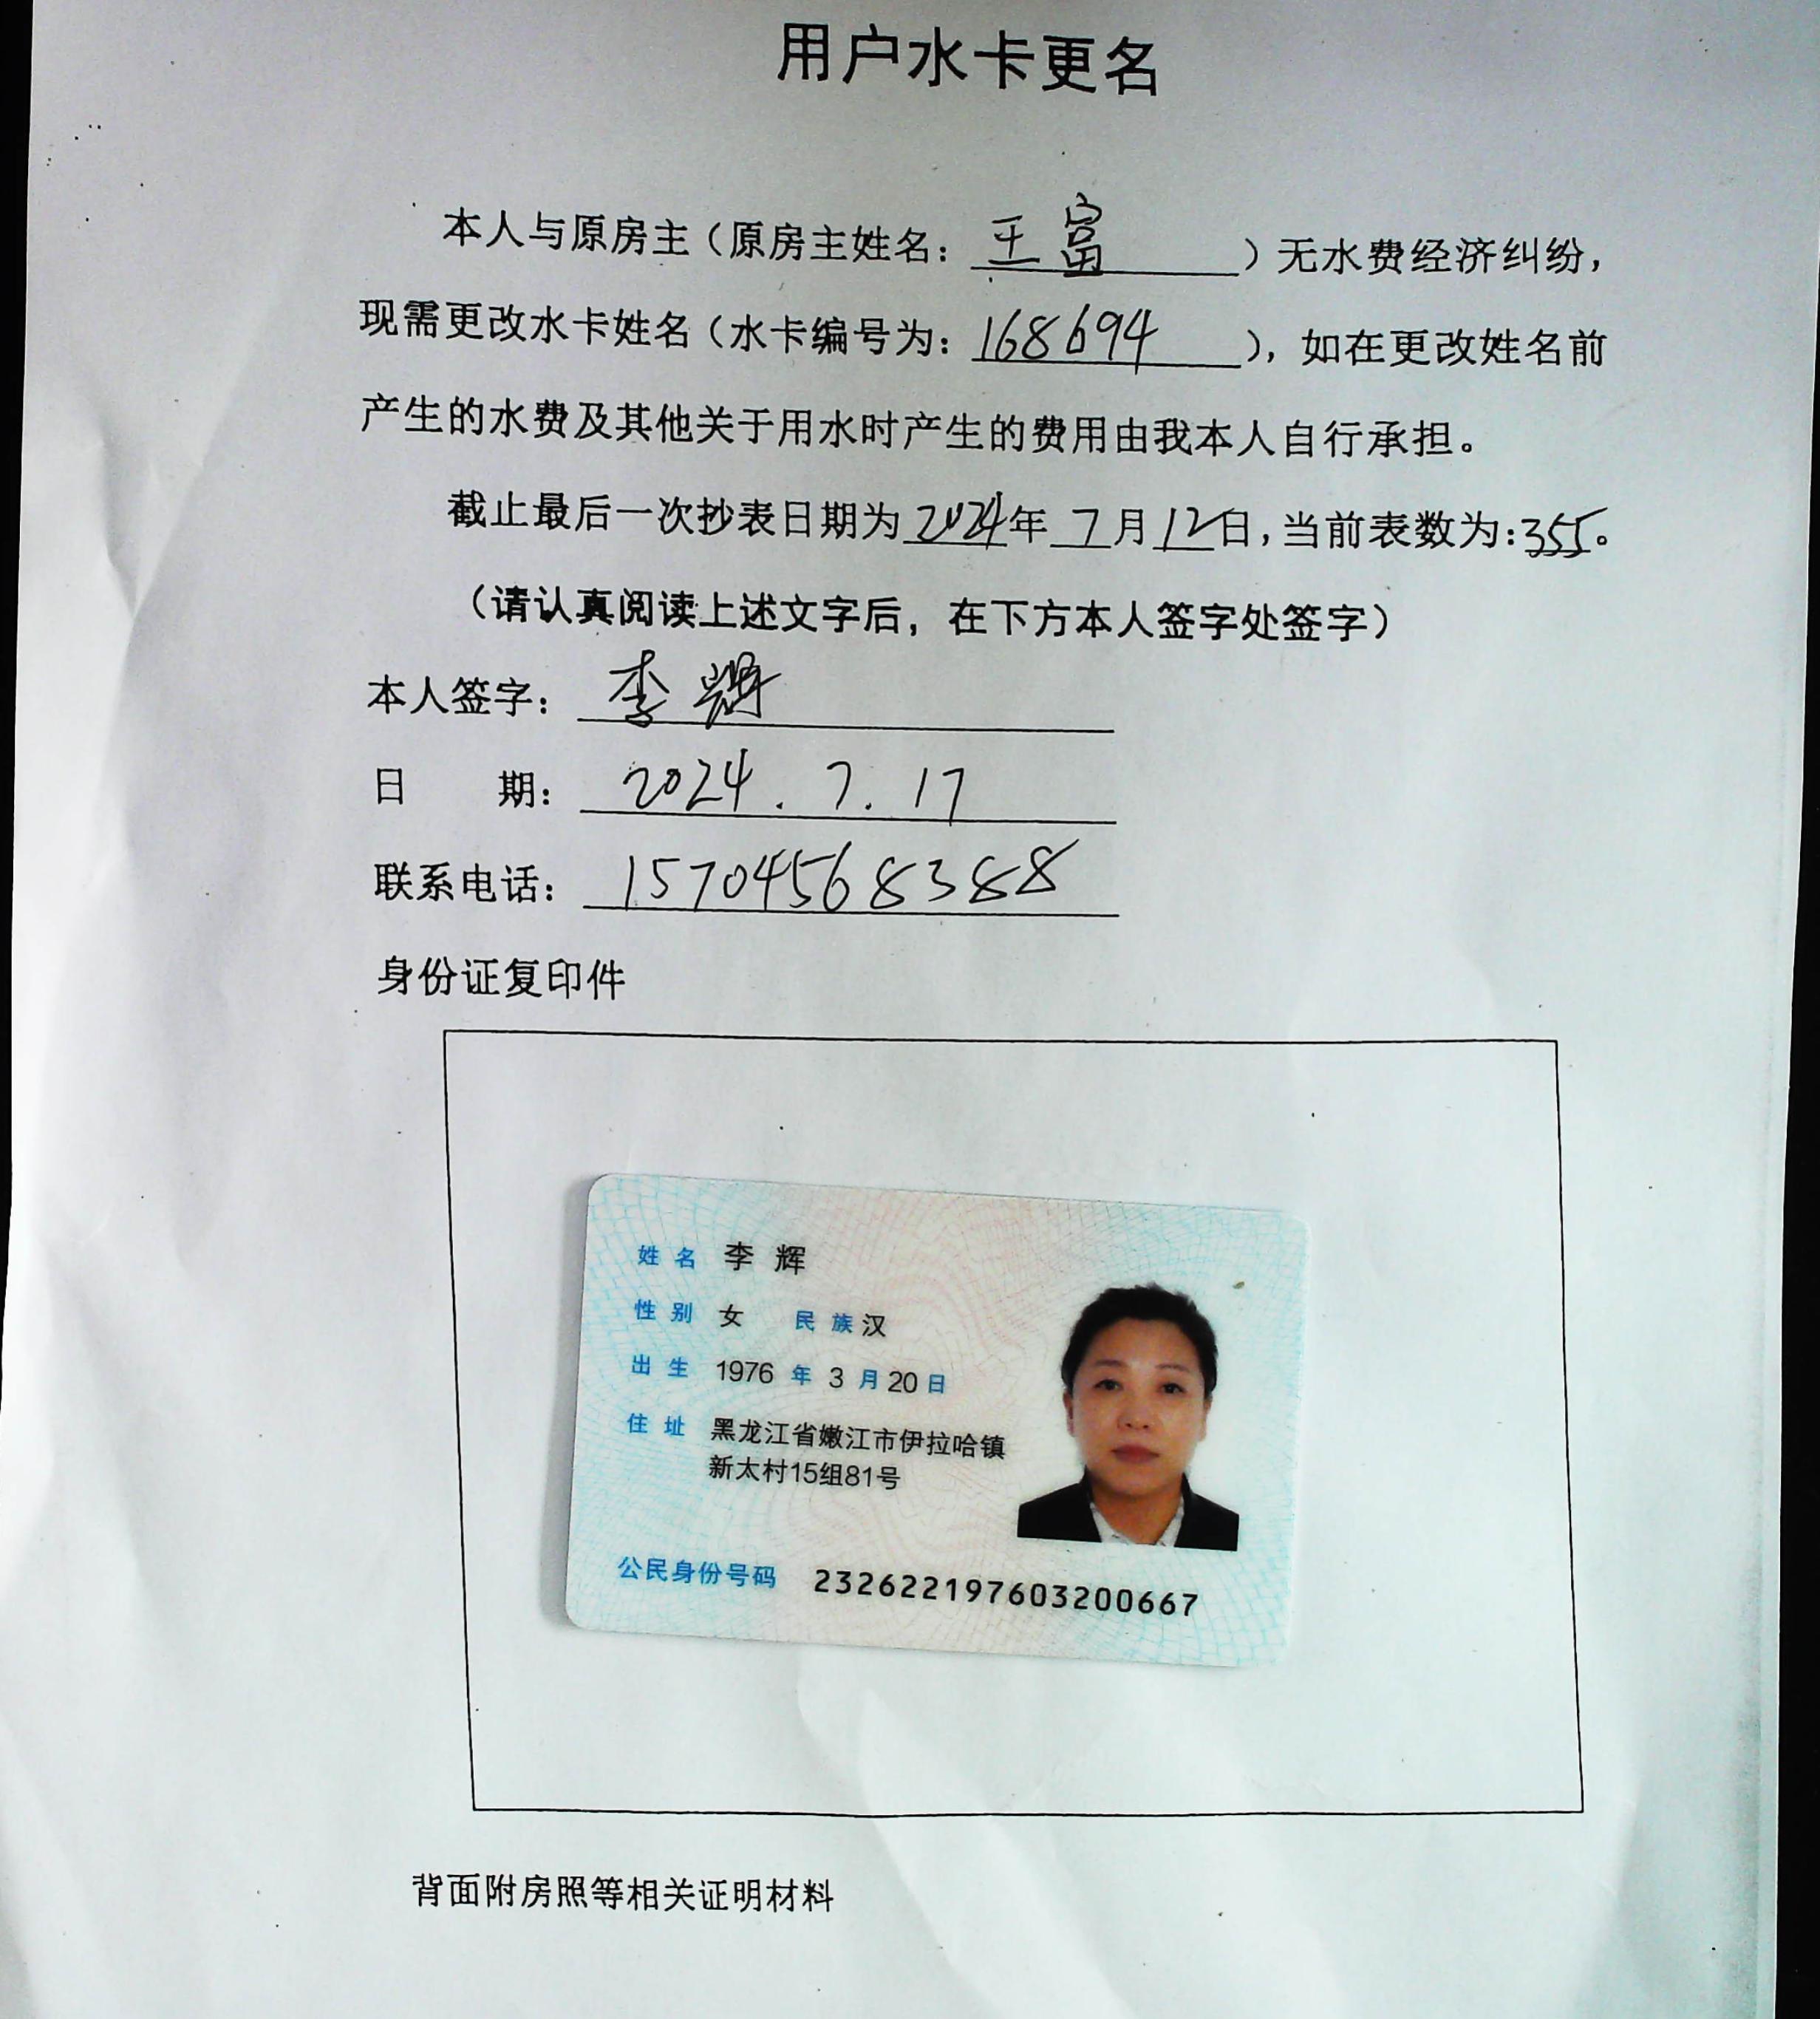 用户水卡更名
本人与原房主（原房主姓名：王富）无水费经济纠纷，
现需更改水卡姓名（水卡编号为：168694），如在更改姓名前
产生的水费及其他关于用水时产生的费用由我本人自行承担。
截止最后一次抄表日期为2024年7月12日，当前表数为：355。
（请认真阅读上述文字后，在下方本人签字处签字）
本人签字：李辉
日 期：2024.7.17
联系电话：15704568388
身份证复印件
姓名 李辉
性别 女 民族 汉
出生 1976 年 3 月 20 日
住址 黑龙江省嫩江市伊拉哈镇
新太村15组81号
公民身份号码 232622197603200667
背面附房照等相关证明材料